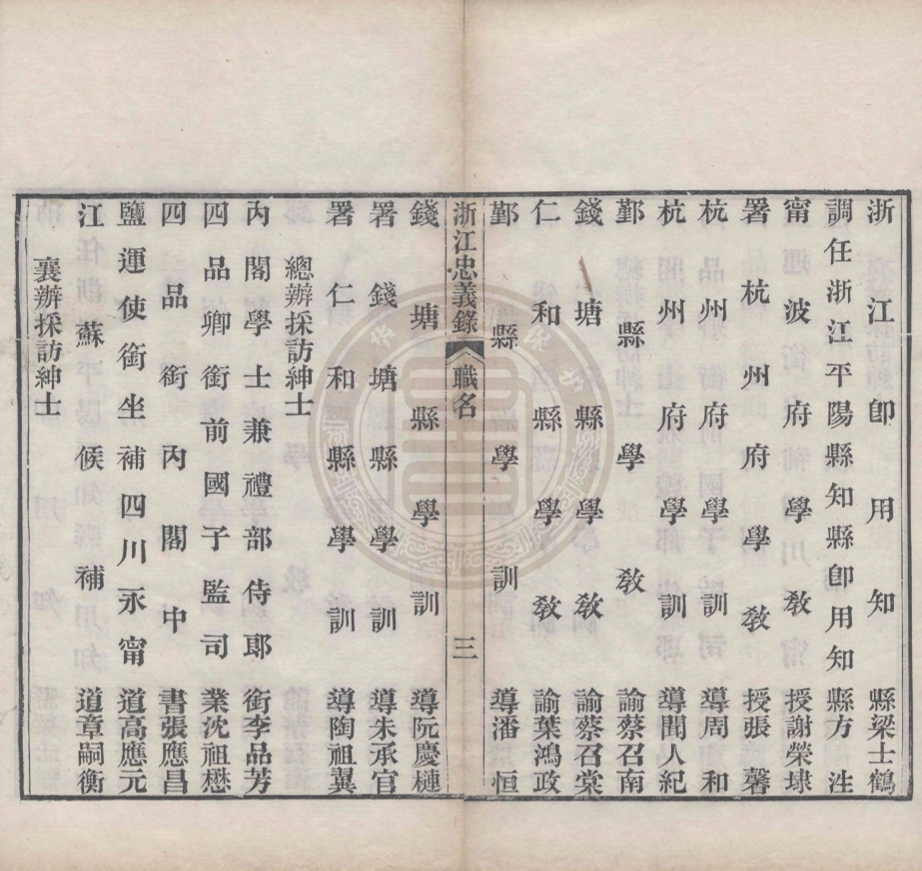 浙江卽用知縣梁士鶴
調任浙江平陽縣知縣卽用知縣方泩
甯波府學教授謝榮埭
署杭州府學教授張馨
杭州府學訓導周和
杭州府學訓導聞人紀
鄞縣學教諭蔡召南
錢塘縣學教諭蔡召棠
仁和縣學教諭葉鴻政
鄞縣學訓導潘恒
浙江忠義錄 職名 三
錢塘縣學訓導阮慶槤
署錢塘縣學訓導朱承官
署仁和縣學訓導陶祖翼
總辦採訪紳士
內閣學士兼禮部侍郎銜李品芳
四品卿銜前國子監司業沈祖懋
四品銜內閣中書張應昌
鹽運使銜坐補四川永甯道高應元
江蘇候補道章嗣衡
襄辦採訪紳士